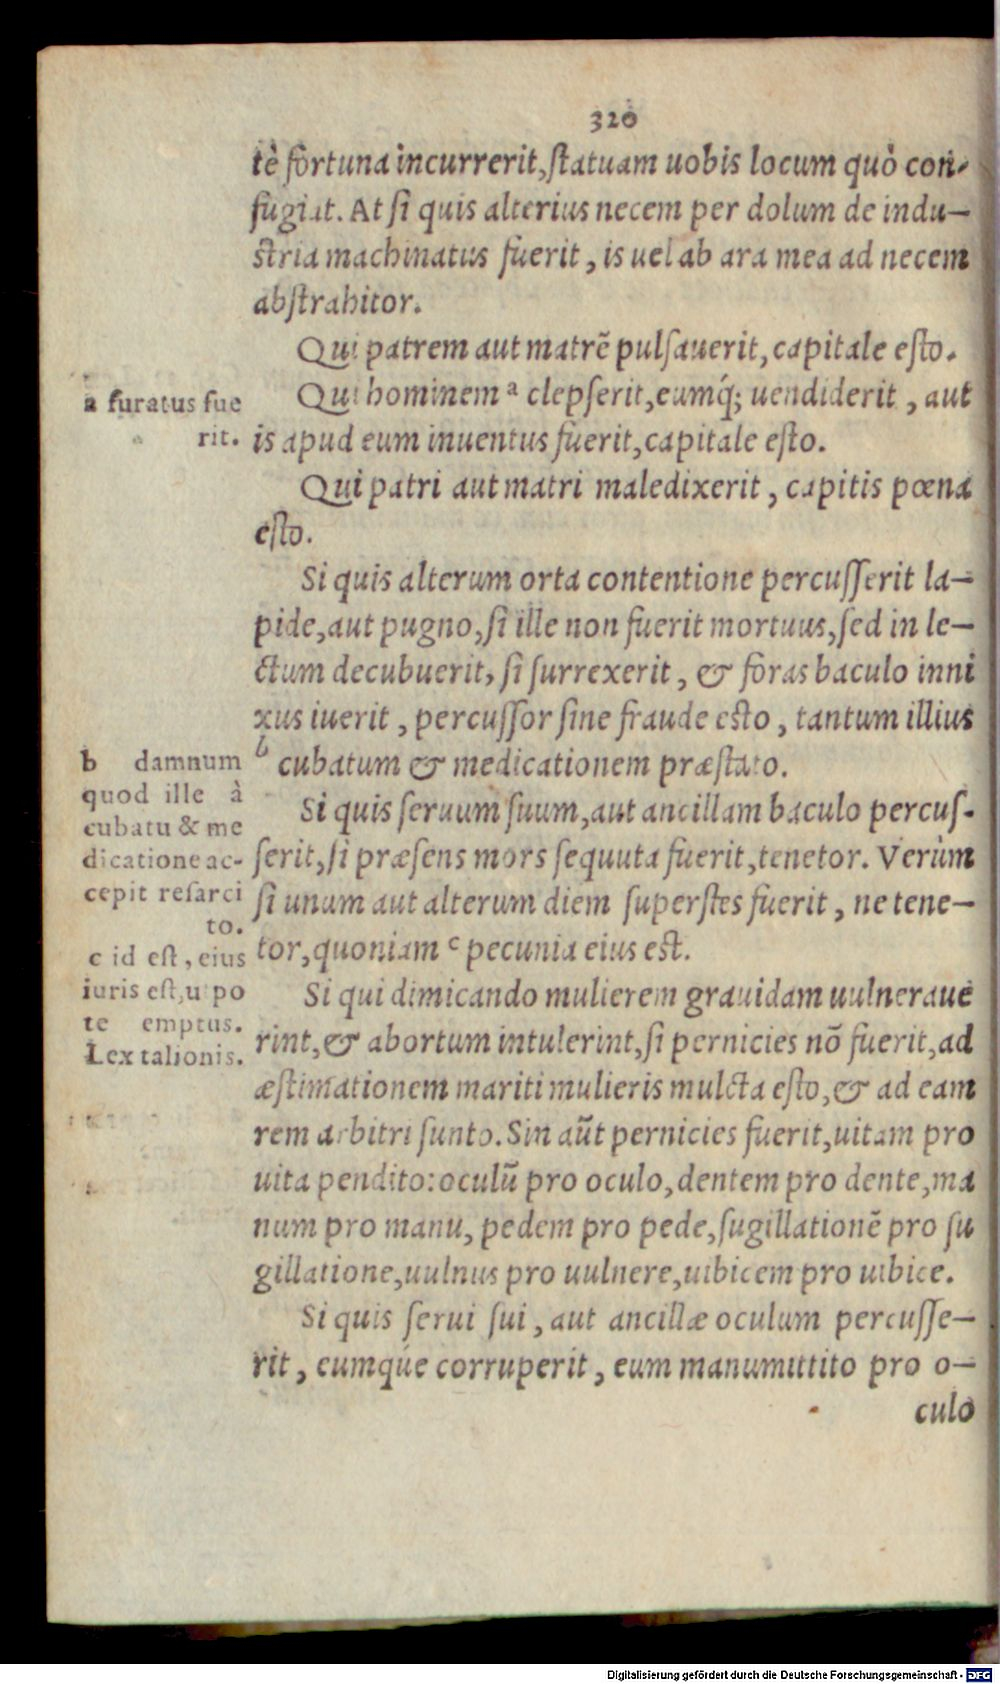 320
tè fortuna incurrerit, ſtatuam uobis locum quò con-
fugiat. At ſi quis alterius necem per dolum de indu-
ſtria machinatus fuerit, is uel ab ara mea ad necem
abſtrahitor.
Qui patrem aut matrē pulſauerit, capitale eſto.
a furatus fue
rit.
Qui hominem ᵃ clepſerit, eumq́; uendiderit, aut
is apud eum inuentus fuerit, capitale eſto.
Qui patri aut matri maledixerit, capitis pœna
eſto.
Si quis alterum orta contentione percuſſerit la-
pide, aut pugno, ſi ille non fuerit mortuus, ſed in le-
ctum decubuerit, ſi ſurrexerit, & foras baculo inni
xus iuerit, percuſſor ſine fraude eſto, tantum illius
ᵇ cubatum & medicationem præſtato.
b damnum
quod ille à
cubatu & me
dicatione ac-
cepit reſarci
to.
c id eſt, eius
iuris eſt, ut po
te emptus.
Lex talionis.
Si quis ſeruum ſuum, aut ancillam baculo percuſ-
ſerit, ſi præſens mors ſequuta fuerit, tenetor. Verùm
ſi unum aut alterum diem ſuperſtes fuerit, ne tene-
tor, quoniam ᶜ pecunia eius eſt.
Si qui dimicando mulierem grauidam uulneraue
rint, & abortum intulerint, ſi pernicies nō fuerit, ad
æſtimationem mariti mulieris mulcta eſto, & ad eam
rem arbitri ſunto. Sin aūt pernicies fuerit, uitam pro
uita pendito: oculū pro oculo, dentem pro dente, ma
num pro manu, pedem pro pede, ſugillationē pro ſu
gillatione, uulnus pro uulnere, uibicem pro uibice.
Si quis ſerui ſui, aut ancillæ oculum percuſſe-
rit, eumque corruperit, eum manumittito pro o-
culo
Digitalisierung gefördert durch die Deutsche Forschungsgemeinschaft - DFG